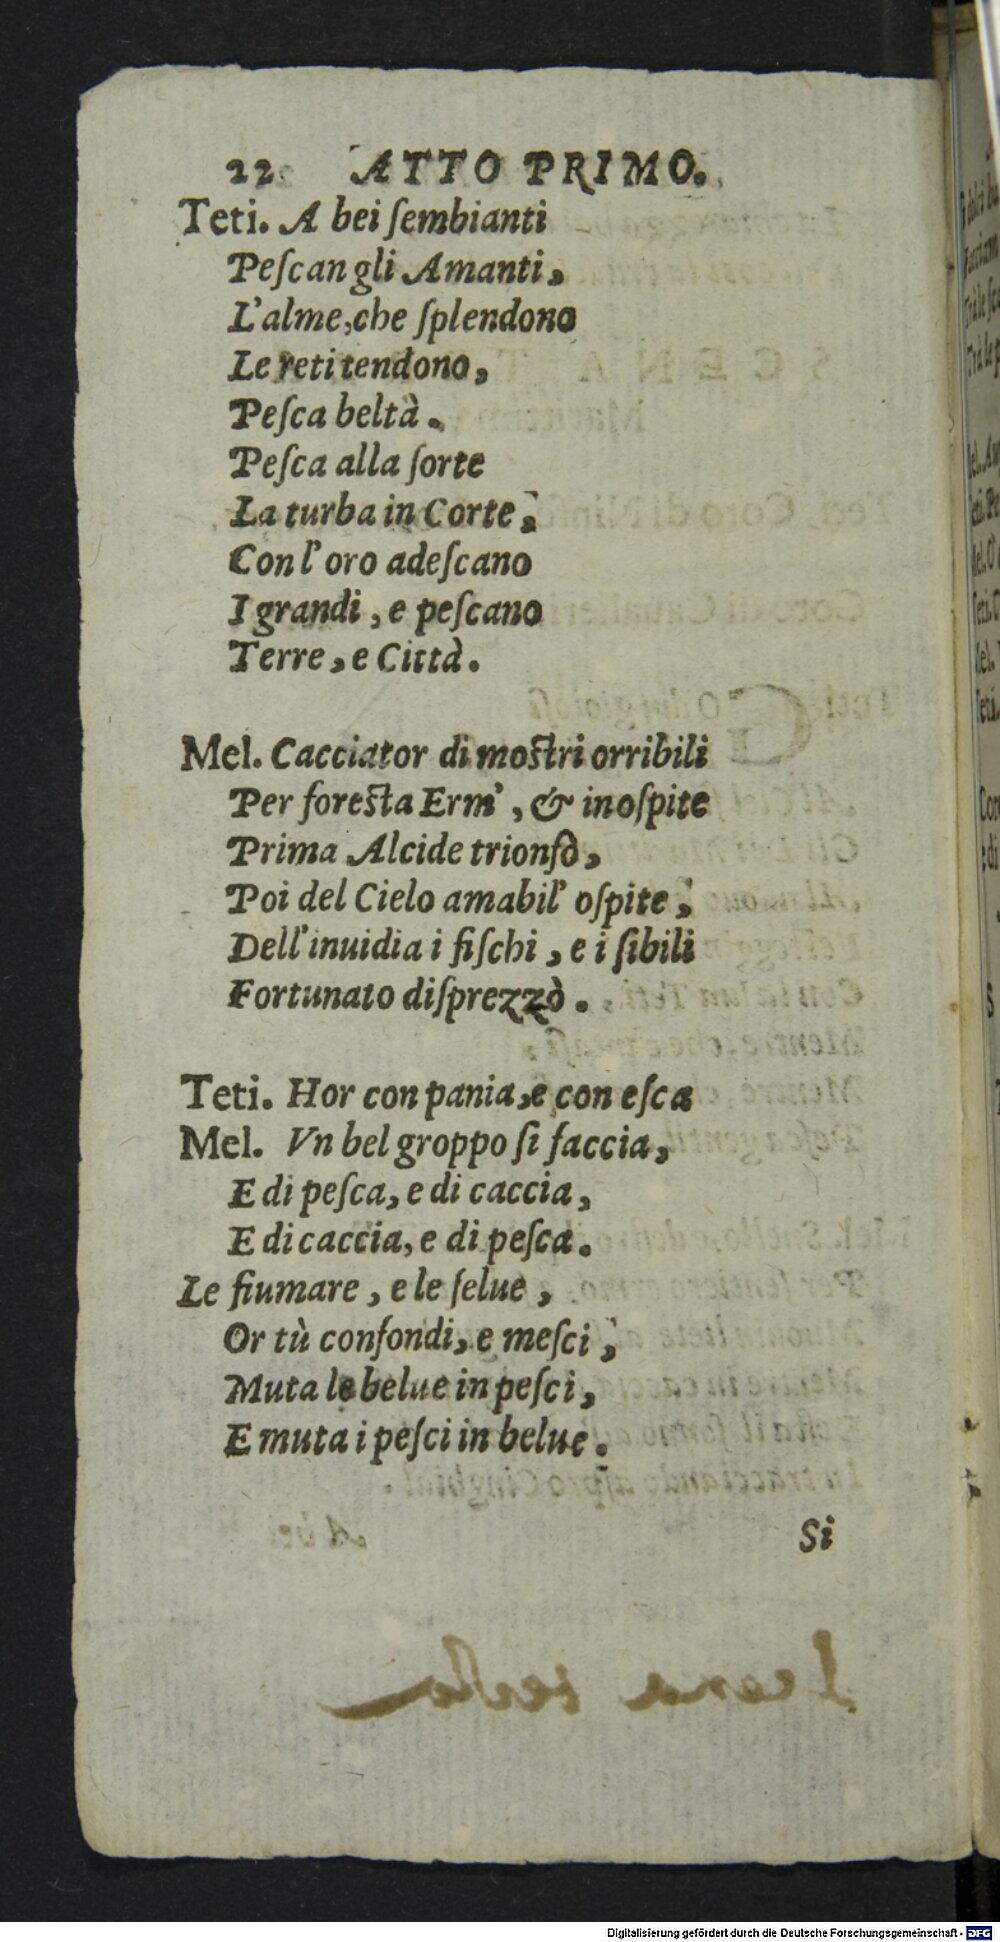 22 ATTO PRIMO.
Teti. A bei ſembianti
Peſcan gli Amanti,
L'alme, che ſplendono
Le reti tendono,
Peſca beltà.
Peſca alla ſorte
La turba in Corte;
Con l'oro adeſcano
I grandi, e peſcano
Terre, e Città.
Mel. Cacciator di moſtri orribili
Per foreſta Erm', & inoſpite
Prima Alcide trionfò,
Poi del Cielo amabil' oſpite;
Dell'inuidia i fiſchi, e i ſibili
Fortunato diſprezzò.
Teti. Hor con pania, e con eſca
Mel. Vn bel groppo ſi faccia,
E di peſca, e di caccia,
E di caccia, e di peſca.
Le fiumare, e le ſelue,
Or tù confondi, e meſci;
Muta le belue in peſci,
E muta i peſci in belue.
Si
Digitalisierung gefördert durch die Deutsche Forschungsgemeinschaft - DFG